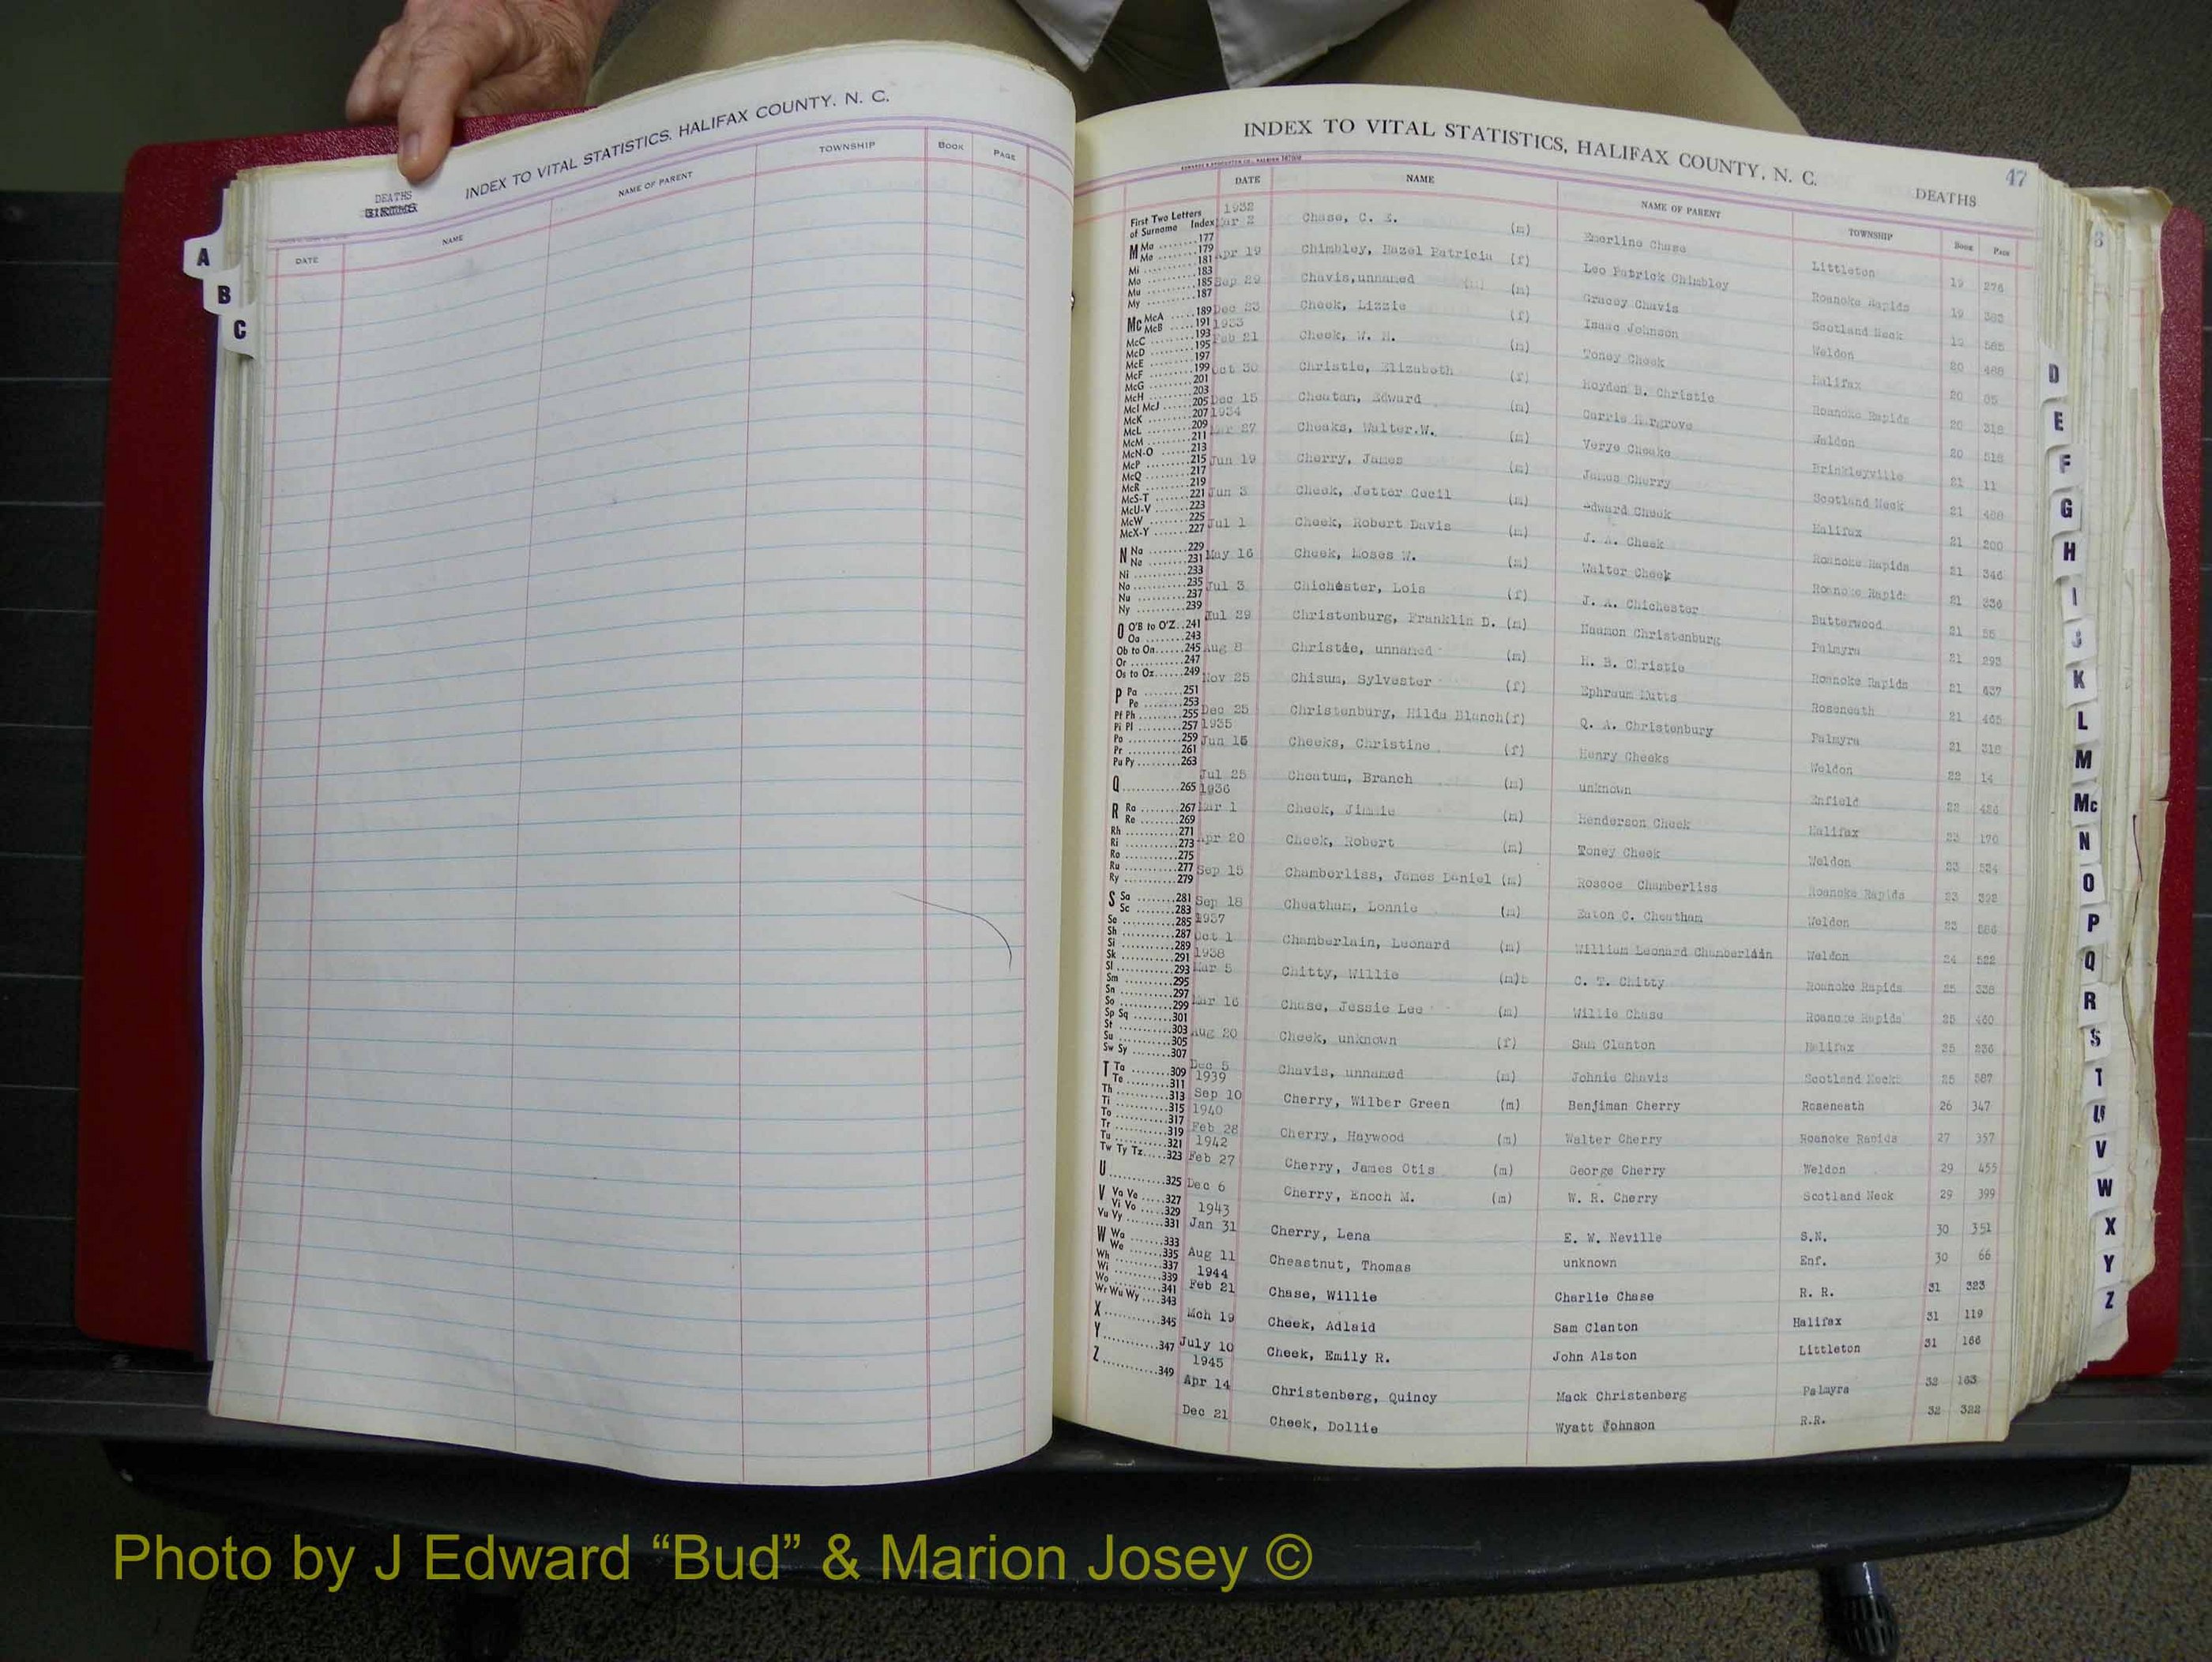 INDEX TO VITAL STATISTICS, HALIFAX COUNTY, N. C.
DEATHS
BIRTHS
DATE NAME NAME OF PARENT TOWNSHIP BOOK PAGE
A
B
C
INDEX TO VITAL STATISTICS, HALIFAX COUNTY, N. C.
DEATHS 47
DATE NAME NAME OF PARENT TOWNSHIP BOOK PAGE
First Two Letters of Surname Index
1932
Mar 2 Chase, C. E. (m) Emerline Chase Littleton 19 276
Apr 19 Chimbley, Hazel Patricia (f) Leo Patrick Chimbley Roanoke Rapids 19
Sep 29 Chavis,unnamed (m) Gracey Chavis Scotland Neck 19 565
Dec 23 Cheek, Lizzie (f) Isaac Johnson Weldon 20 468
1933
Feb 21 Cheek, W. H. (m) Toney Cheek Halifax 20
Oct 30 Christie, Elizabeth (f) Hoyden B. Christie Roanoke Rapids 20 318
Dec 15 Cheatam, Edward (m) Carrie Hargrove Weldon 20 516
1934
Mar 27 Cheaks, Walter.W. (m) Verye Cheake Brinkleyville 21 11
Jun 19 Cherry, James (m) James Cherry Scotland Neck 21
Jun 3 Cheek, Jetter Cecil (m) Edward Cheek Halifax 21 200
Jul 1 Cheek, Robert Davis (m) J. A. Cheek Roanoke Rapids 21 346
May 16 Cheek, Moses W. (m) Walter Cheek Roanoke Rapids 21 336
Jul 3 Chichester, Lois (f) J. A. Chichester Butterwood 21 55
Jul 29 Christenburg, Franklin D. (m) Naamon Christenburg Palmyra 21 293
Aug 8 Christie, unnamed (m) H. B. Christie Roanoke Rapids 21 437
Nov 25 Chisum, Sylvester (f) Ephraum Mutts Roseneath 21 465
Dec 25 Christenbury, Hilda Blanch(f) Q. A. Christenbury Palmyra 21 318
1935
Jun 15 Cheeks, Christine (f) Henry Cheeks Weldon 22 14
Jul 25 Cheatum, Branch (m) unknown Enfield 22
1936
Mar 1 Cheek, Jimmie (m) Henderson Cheek Halifax 23 170
Apr 20 Cheek, Robert (m) Toney Cheek Weldon 23 534
Sep 15 Chamberliss, James Daniel (m) Roscoe Chamberliss Roanoke Rapids 23
Sep 18 Cheatham, Lonnie (m) Eaton C. Cheatham Weldon 23
1937
Oct 1 Chamberlain, Leonard (m) William Leonard Chamberlain Weldon 24 522
1938
Mar 5 Chitty, Willie (m) C. T. Chitty Roanoke Rapids 25 338
Mar 16 Chase, Jessie Lee (m) Willie Chase Roanoke Rapids 25 460
Aug 20 Cheek, unknown (f) Sam Clanton Halifax 25 236
Dec 5 Chavis, unnamed (m) Johnie Chavis Scotland Neck 25 587
1939
Sep 10 Cherry, Wilber Green (m) Benjiman Cherry Roseneath 26 347
1940
Feb 28 Cherry, Haywood (m) Walter Cherry Roanoke Rapids 27 357
1942
Feb 27 Cherry, James Otis (m) George Cherry Weldon 29 455
Dec 6 Cherry, Enoch M. (m) W. R. Cherry Scotland Neck 29 399
1943
Jan 31 Cherry, Lena E. W. Neville S.N. 30 351
Aug 11 Cheastnut, Thomas unknown Enf. 30 66
1944
Feb 21 Chase, Willie Charlie Chase R. R. 31 323
Mch 19 Cheek, Adlaid Sam Clanton Halifax 31 119
July 10 Cheek, Emily R. John Alston Littleton 31 166
1945
Apr 14 Christenberg, Quincy Mack Christenberg Palmyra 32 163
Dec 21 Cheek, Dollie Wyatt Johnson R.R. 32 322
M Ma ........177
Me ........179
Mi ........181
Mo ........183
Mu ........185
My ........187
Mc McA .....189
McB .....191
McC ........193
McD ........195
McE ........197
McF ........199
McG ........201
McH ........203
McI McJ .....205
McK ........207
McL ........209
McM ........211
McN-O ......213
McP ........215
McQ ........217
McR ........219
McS-T .......221
McU-V .......223
McW ........225
McX-Y .......227
N Na ........229
Ne ........231
Ni ........233
No ........235
Nu ........237
Ny ........239
O O'B to O'Z..241
Oa ........243
Ob to On......245
Or ........247
Os to Oz......249
P Pa ........251
Pe ........253
Pf Ph ........255
Pi Pl ........257
Po ........259
Pr ........261
Pu Py ........263
Q ........265
R Ra ........267
Re ........269
Rh ........271
Ri ........273
Ro ........275
Ru ........277
Ry ........279
S Sa ........281
Sc ........283
Se ........285
Sh ........287
Si ........289
Sk ........291
Sl ........293
Sm ........295
Sn ........297
So ........299
Sp Sq ........301
St ........303
Su ........305
Sw Sy ........307
T Ta ........309
Te ........311
Th ........313
Ti ........315
To ........317
Tr ........319
Tu ........321
Tw Ty Tz.....323
U ........325
V Va Ve .....327
Vi Vo .....329
Vu Vy ........331
W Wa ........333
We ........335
Wh ........337
Wi ........339
Wo ........341
Wr Wu Wy ....343
X ........345
Y ........347
Z ........349
D
E
F
G
H
I
J
K
L
M
Mc
N
O
P
Q
R
S
T
U
V
W
X
Y
Z
Photo by J Edward “Bud” & Marion Josey ©